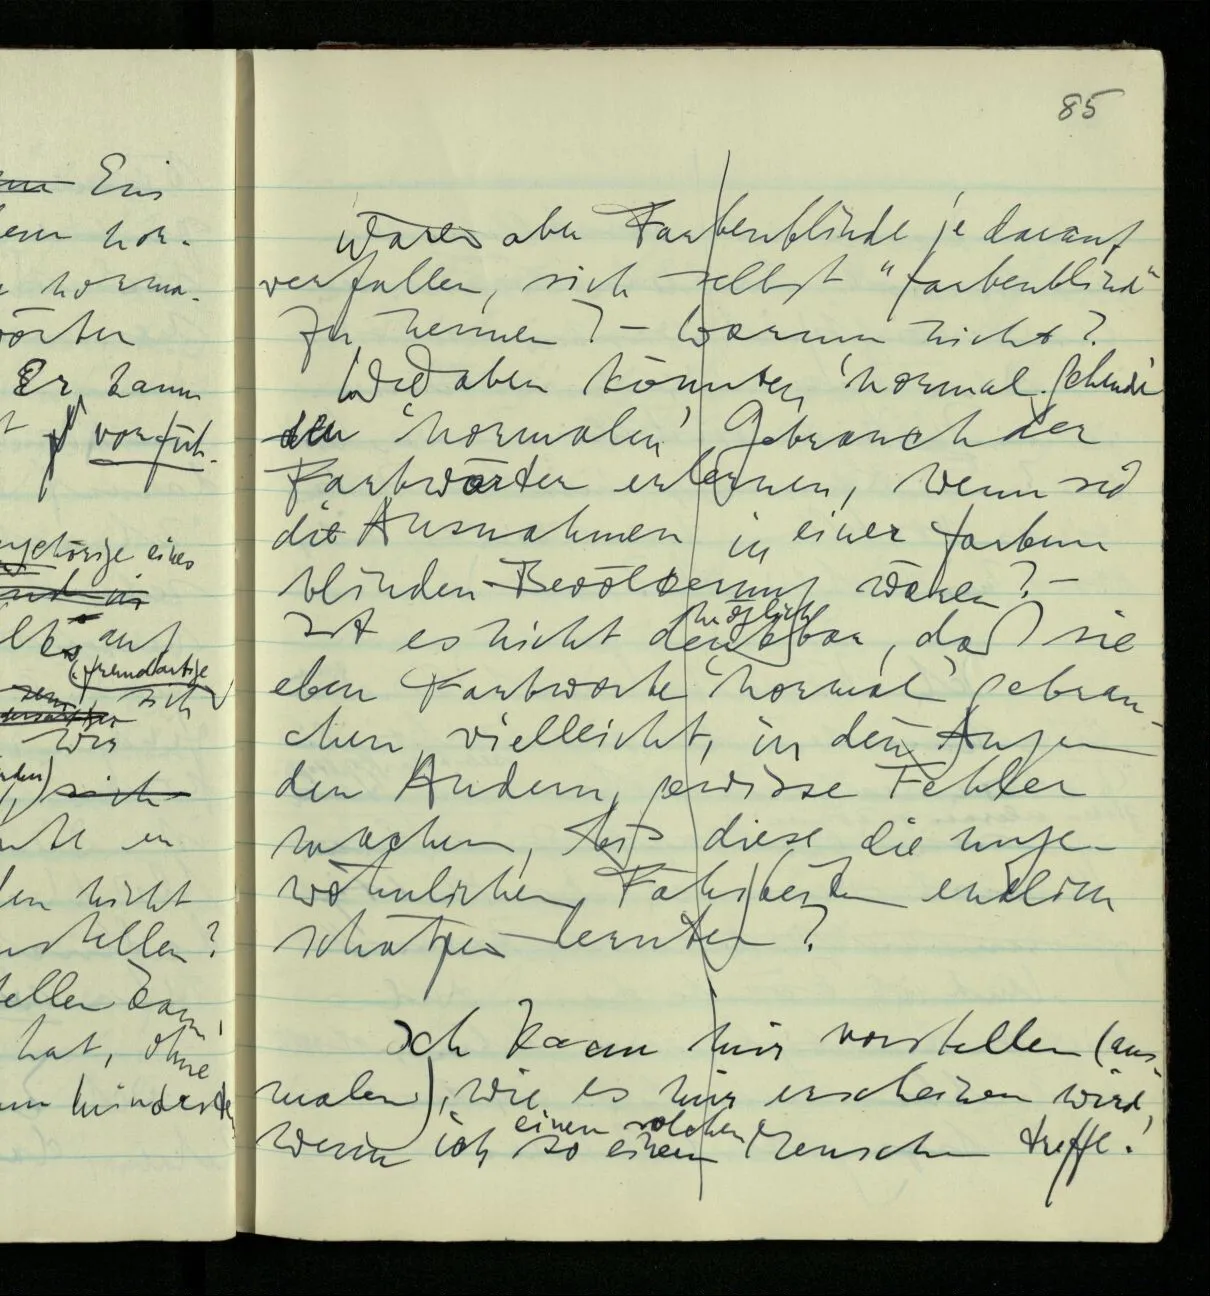 85
Eis
nor-
norma-
örter
Er kann
vorfüh-
ngehörige eines
auf
sich
wir
sich
den nicht
stellen?
tellen kann,
hat, ohne
mindesten
Wären aber Farbenblinde je darauf
verfallen, sich selbst "farbenblind"
zu nennen? – Warum nicht?
Wie aber könnten 'normal Sehende'
den 'normalen' Gebrauch der
Farbwörter erlernen, wenn sie
die Ausnahmen in einer farben
blinden Bevölkerung wären? –
möglich
Ist es nicht denkbar, daß sie
eben Farbworte 'normal' gebrau-
chen, vielleicht, in den Augen
der Andern, gewisse Fehler
machen, bis diese die unge-
wöhnlichen Fähigkeiten endlich
schätzen lernten?
Ich kann mir vorstellen (aus-
malen), wie es mir erscheinen wird,
einen solchen
wenn ich so einen Menschen treffe.